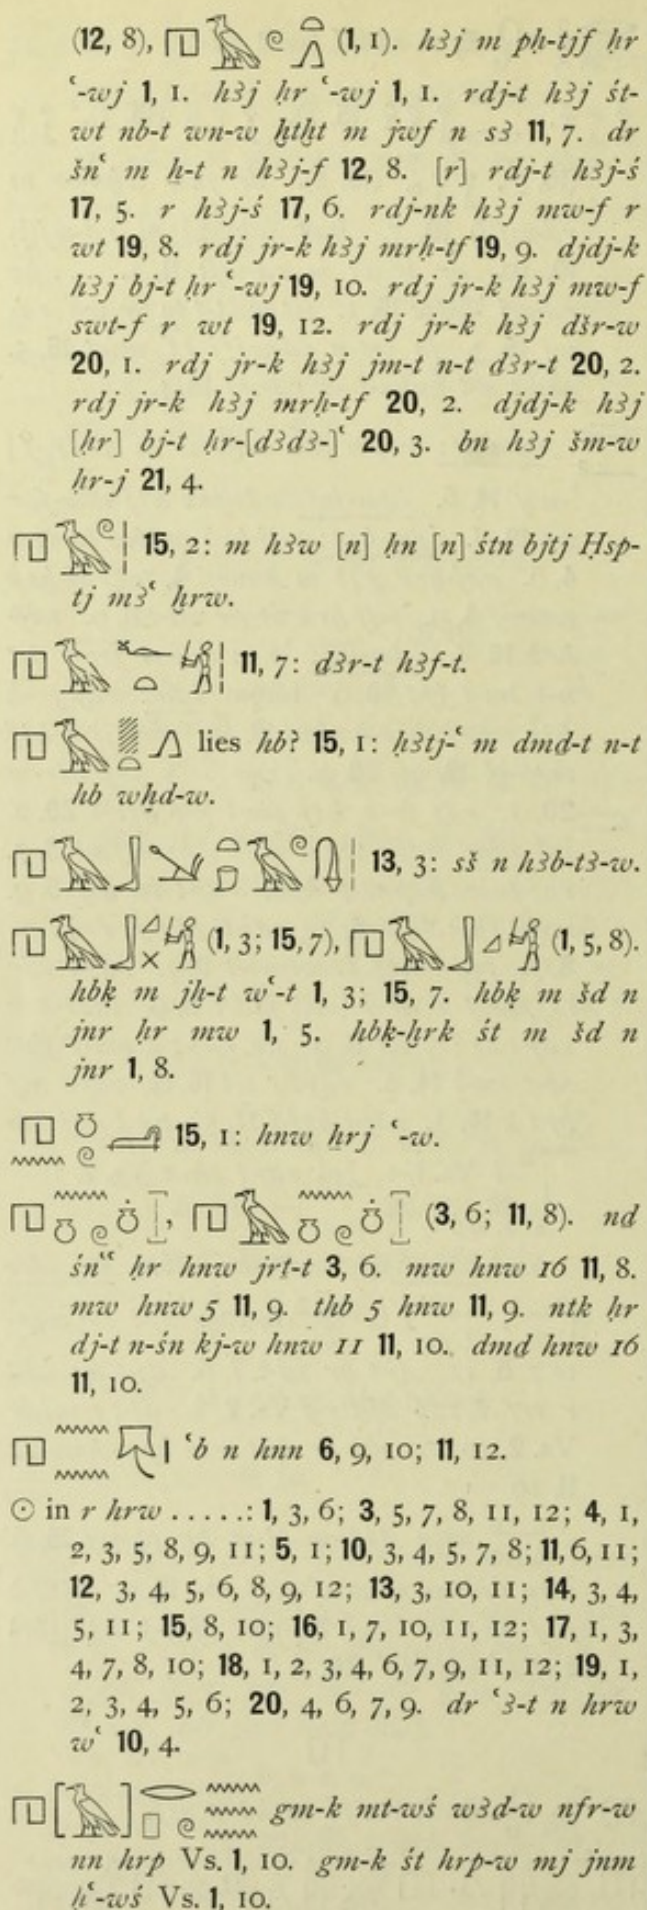 (12, 8), 𓉔𓅐𓏲𓏏𓂻 (1, 1). hꜣj m pḥ-tjf ḥr
ꜥ-wj 1, 1. hꜣj ḥr ꜥ-wj 1, 1. rdj-t hꜣj śt-
wt nb-t wn-w ḫtḫt m jwf n sꜣ 11, 7. dr
šnꜥ m ẖ-t n hꜣj-f 12, 8. [r] rdj-t hꜣj-ś
17, 5. r hꜣj-ś 17, 6. rdj-nk hꜣj mw-f r
wt 19, 8. rdj jr-k hꜣj mrḥ-tf 19, 9. djdj-k
hꜣj bj-t ḥr ꜥ-wj 19, 10. rdj jr-k hꜣj mw-f
swt-f r wt 19, 12. rdj jr-k hꜣj dšr-w
20, 1. rdj jr-k hꜣj jm-t n-t dꜣr-t 20, 2.
rdj jr-k hꜣj mrḥ-tf 20, 2. djdj-k hꜣj
[ḥr] bj-t ḥr-[dꜣdꜣ-]ꜥ 20, 3. bn hꜣj šm-w
ḥr-j 21, 4.
15, 2: m hꜣw [n] ḥn [n] śtn bjtj Ḥsp-
tj mꜣꜥ ḫrw.
11, 7: dꜣr-t hꜣf-t.
lies hb? 15, 1: ḥꜣtj-ꜥ m dmd-t n-t
hb wḫd-w.
13, 3: sš n hꜣb-tꜣ-w.
(1, 3; 15, 7), (1, 5, 8).
hbḳ m jḫ-t wꜥ-t 1, 3; 15, 7. hbḳ m šd n
jnr ḥr mw 1, 5. hbḳ-ḫrk śt m šd n
jnr 1, 8.
15, 1: hnw ẖrj ꜥ-w.
(3, 6; 11, 8). nd
śnꜥꜥ ḥr hnw jrṯ-t 3, 6. mw hnw 16 11, 8.
mw hnw 5 11, 9. thb 5 hnw 11, 9. ntk ḥr
dj-t n-śn kj-w hnw 11 11, 10. dmd hnw 16
11, 10.
ꜥb n hnn 6, 9, 10; 11, 12.
☉ in r hrw . . . . .: 1, 3, 6; 3, 5, 7, 8, 11, 12; 4, 1,
2, 3, 5, 8, 9, 11; 5, 1; 10, 3, 4, 5, 7, 8; 11, 6, 11;
12, 3, 4, 5, 6, 8, 9, 12; 13, 3, 10, 11; 14, 3, 4,
5, 11; 15, 8, 10; 16, 1, 7, 10, 11, 12; 17, 1, 3,
4, 7, 8, 10; 18, 1, 2, 3, 4, 6, 7, 9, 11, 12; 19, 1,
2, 3, 4, 5, 6; 20, 4, 6, 7, 9. dr ꜥꜣ-t n hrw
wꜥ 10, 4.
gm-k mt-wś wꜣd-w nfr-w
nn hrp Vs. 1, 10. gm-k śt hrp-w mj jnm
ḥꜥ-wś Vs. 1, 10.